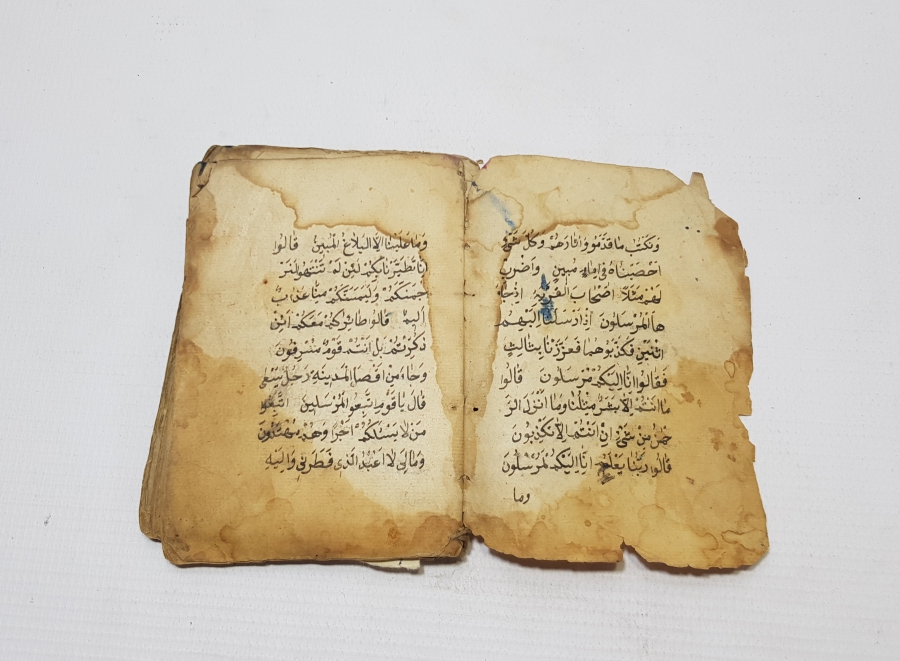 ونكتب ما قدموا واثارهم وكل شئ
احصيناه في امام مبين واضرب
لهم مثلا اصحاب القرية اذ جا
ها المرسلون اذ ارسلنا اليهم
اثنين فكذبوهما فعززنا بثالث
فقالوا انا اليكم مرسلون قالوا
ما انتم الا بشر مثلنا وما انزل الر
حمن من شئ ان انتم الا تكذبون
قالوا ربنا يعلم انا اليكم لمرسلون
وما
وما علينا الا البلاغ المبين قالوا
انا تطيرنا بكم لئن لم تنتهوا لنر
جمنكم وليمسنكم منا عذاب
اليم قالوا طائركم معكم ائن
ذكرتم بل انتم قوم مسرفون
وجاء من اقصا المدينة رجل يسعى
قال يا قوم اتبعوا المرسلين اتبعوا
من لا يسئلكم اجرا وهم مهتدون
وما لي لا اعبد الذي فطرني واليه